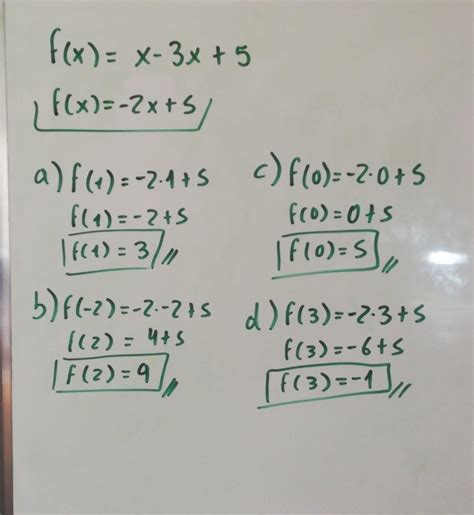 f(x) = x - 3x + 5
f(x) = -2x + 5
a) f(1) = -2·1 + 5
f(1) = -2 + 5
f(1) = 3
b) f(-2) = -2·-2 + 5
f(2) = 4 + 5
f(2) = 9
c) f(0) = -2·0 + 5
f(0) = 0 + 5
f(0) = 5
d) f(3) = -2·3 + 5
f(3) = -6 + 5
f(3) = -1